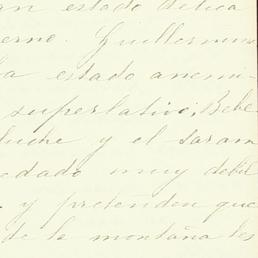 an estado ética
erno. Guillermina
a estado anemi-
superlativo, Bebe
luche y el saram
edado muy debil
y pretenden que
de la montaña les